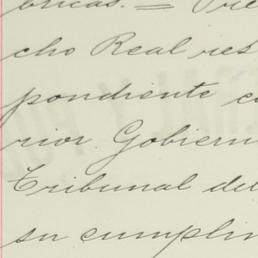 bricas. = Pre
cho Real res
pondiente co
rior Gobiern
Tribunal del
su cumplim